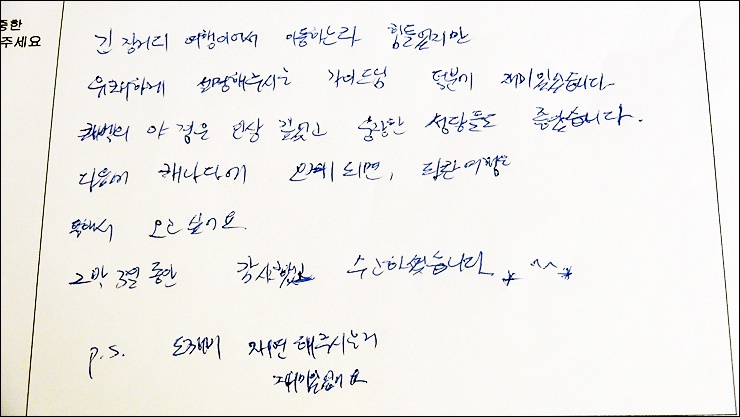 중한
주세요
긴 장거리 여행이어서 이동하는라 힘들었지만
유쾌하게 설명해주시는 가이드님 덕분에 재미있었습니다.
퀘벡의 야경은 인상 깊었고 웅장한 성당들도 좋았습니다.
다음에 캐나다에 오게되면, 타운여행
통해서 오고 싶어요
2박 3일 동안 감사했고 수고하셨습니다 ^^
P.S. 도깨비 재연 해주시는거
재미있었어요